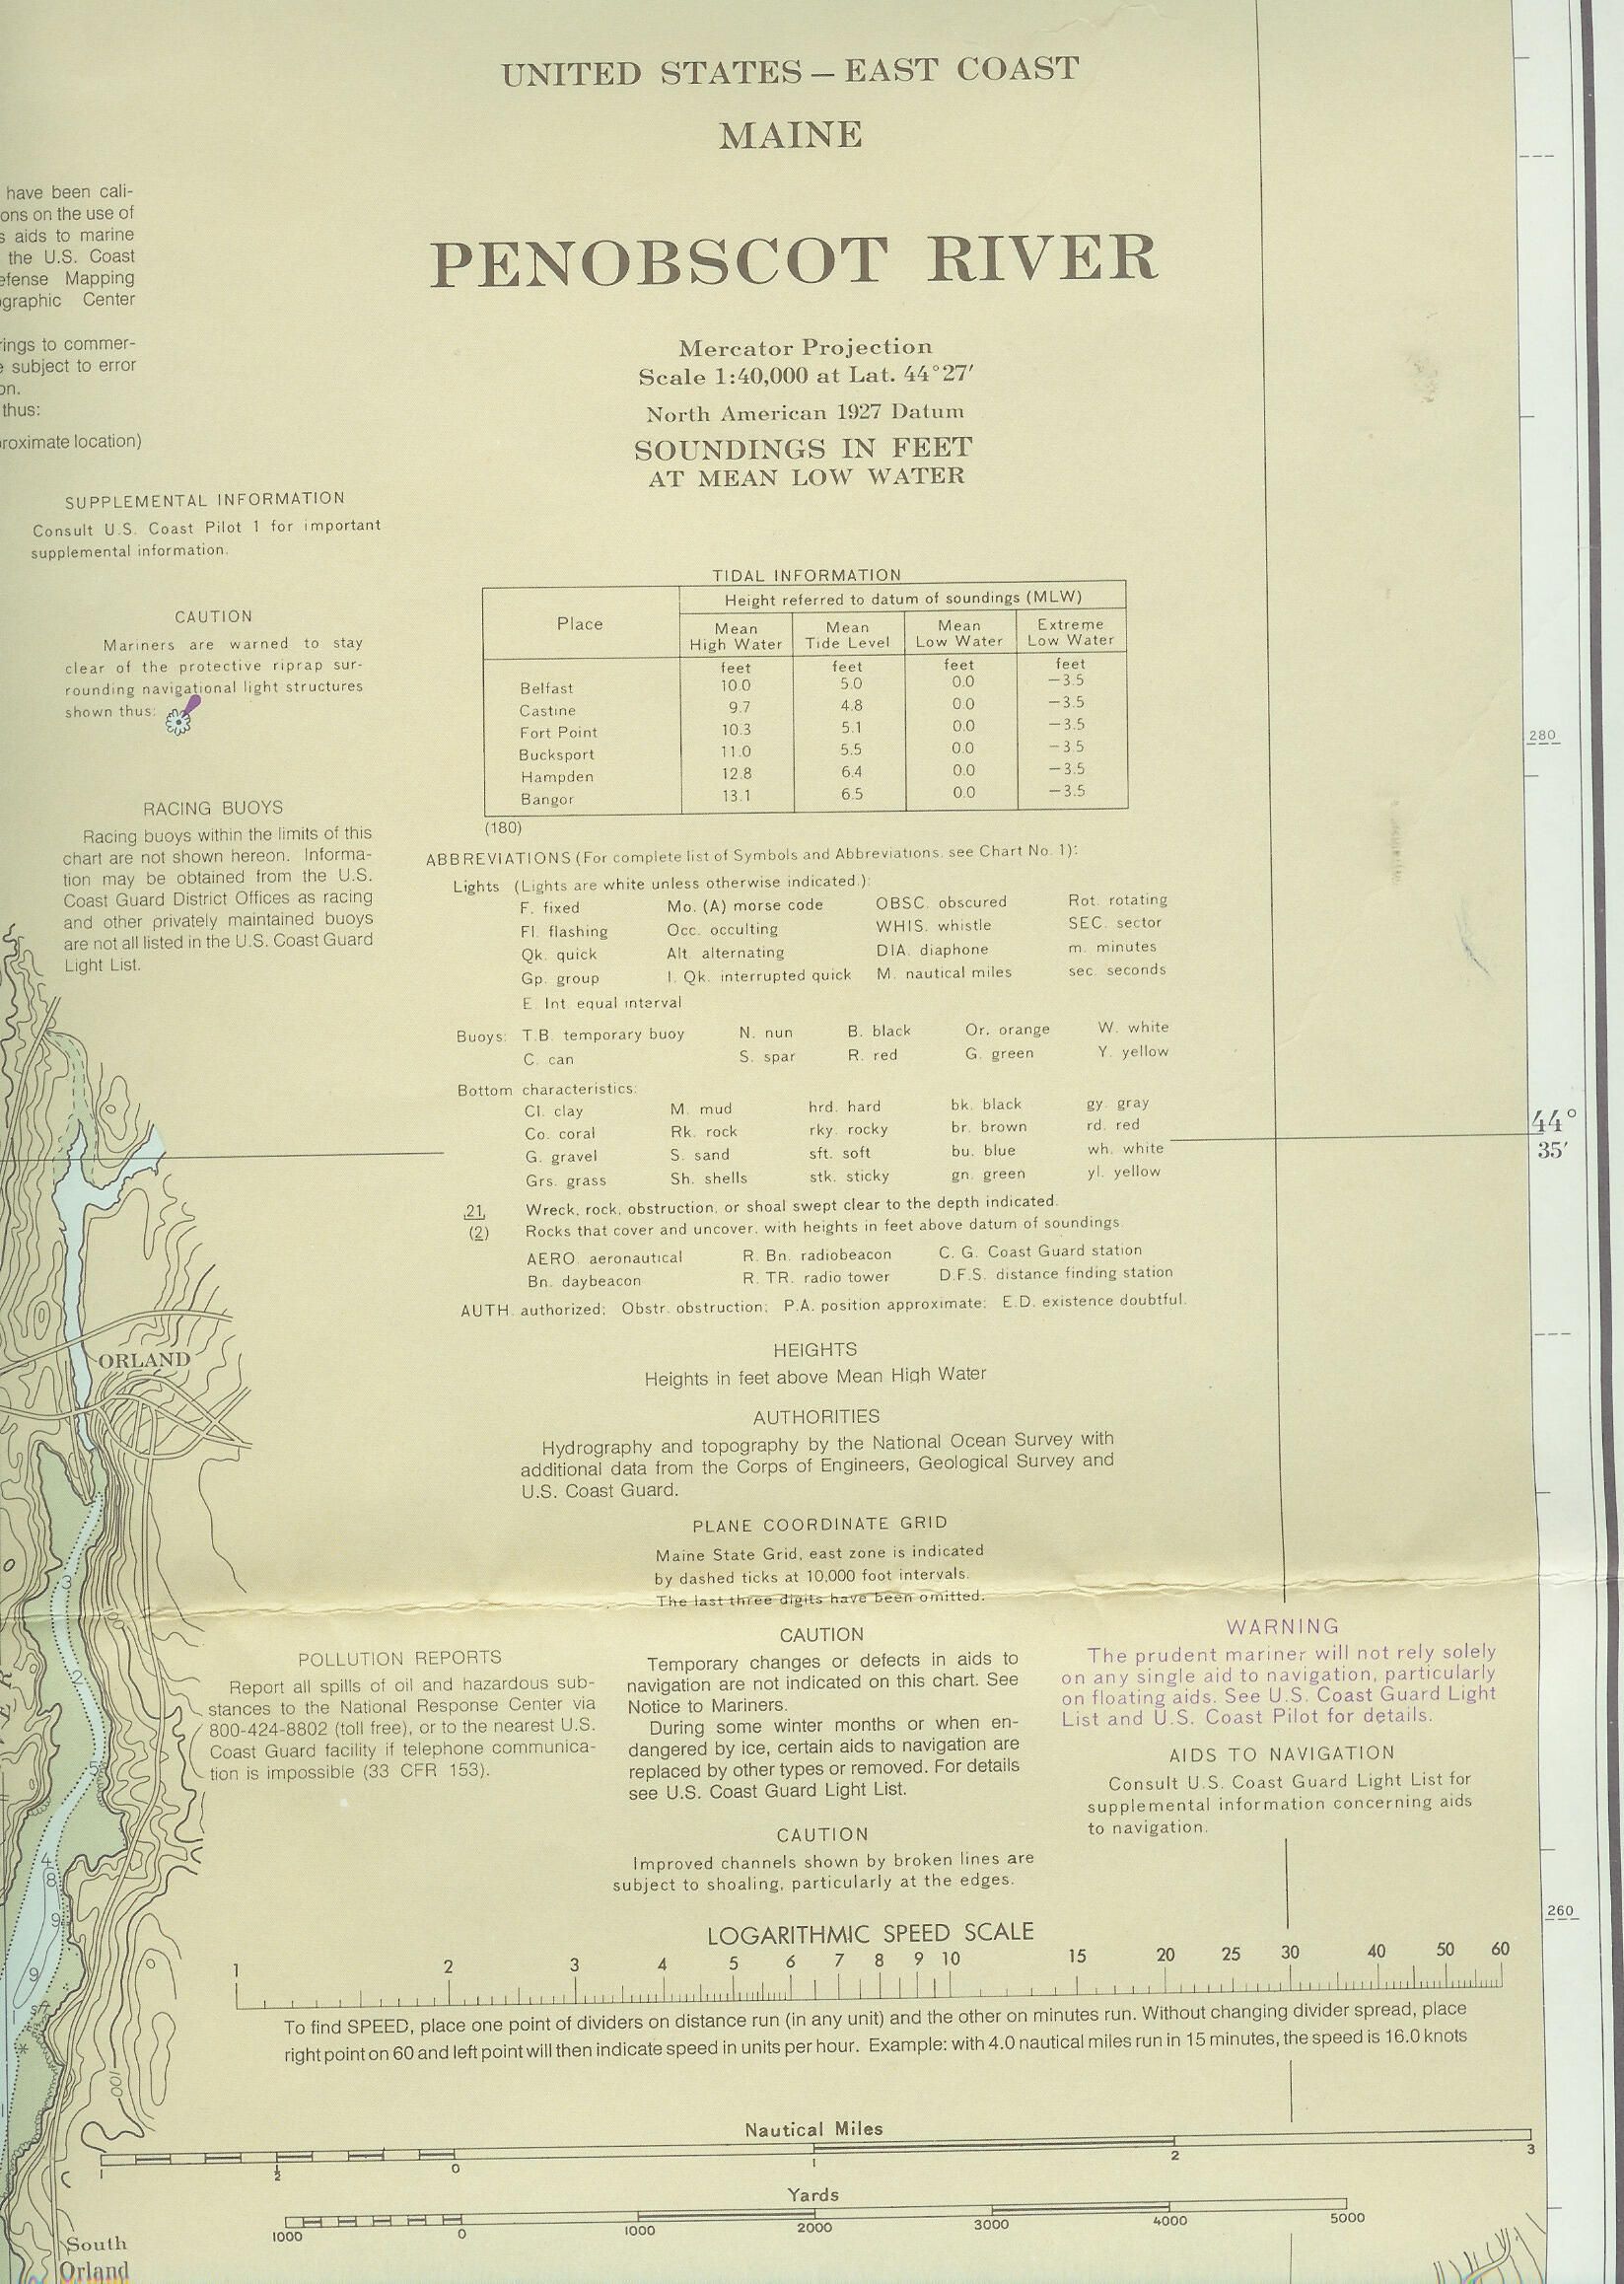 UNITED STATES – EAST COAST
MAINE
PENOBSCOT RIVER
Mercator Projection
Scale 1:40,000 at Lat. 44°27′
North American 1927 Datum
SOUNDINGS IN FEET
AT MEAN LOW WATER
have been cali-
ons on the use of
s aids to marine
the U.S. Coast
efense Mapping
ographic Center
rings to commer-
e subject to error
on.
thus:
proximate location)
SUPPLEMENTAL INFORMATION
Consult U.S. Coast Pilot 1 for important
supplemental information.
CAUTION
Mariners are warned to stay
clear of the protective riprap sur-
rounding navigational light structures
shown thus:
RACING BUOYS
Racing buoys within the limits of this
chart are not shown hereon. Informa-
tion may be obtained from the U.S.
Coast Guard District Offices as racing
and other privately maintained buoys
are not all listed in the U.S. Coast Guard
Light List.
TIDAL INFORMATION
Place Height referred to datum of soundings (MLW)
Mean High Water Mean Tide Level Mean Low Water Extreme Low Water
feet feet feet feet
Belfast 10.0 5.0 0.0 –3.5
Castine 9.7 4.8 0.0 –3.5
Fort Point 10.3 5.1 0.0 –3.5
Bucksport 11.0 5.5 0.0 –3.5
Hampden 12.8 6.4 0.0 –3.5
Bangor 13.1 6.5 0.0 –3.5
(180)
ABBREVIATIONS (For complete list of Symbols and Abbreviations, see Chart No. 1):
Lights (Lights are white unless otherwise indicated.):
F. fixed Mo. (A) morse code OBSC. obscured Rot. rotating
Fl. flashing Occ. occulting WHIS. whistle SEC. sector
Qk. quick Alt. alternating DIA. diaphone m. minutes
Gp. group I. Qk. interrupted quick M. nautical miles sec. seconds
E. Int. equal interval
Buoys: T.B. temporary buoy N. nun B. black Or. orange W. white
C. can S. spar R. red G. green Y. yellow
Bottom characteristics:
Cl. clay M. mud hrd. hard bk. black gy. gray
Co. coral Rk. rock rky. rocky br. brown rd. red
G. gravel S. sand sft. soft bu. blue wh. white
Grs. grass Sh. shells stk. sticky gn. green yl. yellow
21 Wreck, rock, obstruction, or shoal swept clear to the depth indicated.
(2) Rocks that cover and uncover, with heights in feet above datum of soundings.
AERO. aeronautical R. Bn. radiobeacon C. G. Coast Guard station
Bn. daybeacon R. TR. radio tower D.F.S. distance finding station
AUTH. authorized; Obstr. obstruction; P.A. position approximate; E.D. existence doubtful.
HEIGHTS
Heights in feet above Mean High Water
AUTHORITIES
Hydrography and topography by the National Ocean Survey with
additional data from the Corps of Engineers, Geological Survey and
U.S. Coast Guard.
PLANE COORDINATE GRID
Maine State Grid, east zone is indicated
by dashed ticks at 10,000 foot intervals.
The last three digits have been omitted.
POLLUTION REPORTS
Report all spills of oil and hazardous sub-
stances to the National Response Center via
800-424-8802 (toll free), or to the nearest U.S.
Coast Guard facility if telephone communica-
tion is impossible (33 CFR 153).
CAUTION
Temporary changes or defects in aids to
navigation are not indicated on this chart. See
Notice to Mariners.
During some winter months or when en-
dangered by ice, certain aids to navigation are
replaced by other types or removed. For details
see U.S. Coast Guard Light List.
CAUTION
Improved channels shown by broken lines are
subject to shoaling, particularly at the edges.
WARNING
The prudent mariner will not rely solely
on any single aid to navigation, particularly
on floating aids. See U.S. Coast Guard Light
List and U.S. Coast Pilot for details.
AIDS TO NAVIGATION
Consult U.S. Coast Guard Light List for
supplemental information concerning aids
to navigation.
LOGARITHMIC SPEED SCALE
1 2 3 4 5 6 7 8 9 10 15 20 25 30 40 50 60
To find SPEED, place one point of dividers on distance run (in any unit) and the other on minutes run. Without changing divider spread, place
right point on 60 and left point will then indicate speed in units per hour. Example: with 4.0 nautical miles run in 15 minutes, the speed is 16.0 knots
Nautical Miles
1 ½ 0 1 2 3
Yards
1000 0 1000 2000 3000 4000 5000
280
44°
35′
260
ORLAND
3
2
5
4
8
9
9
100
South
Orland